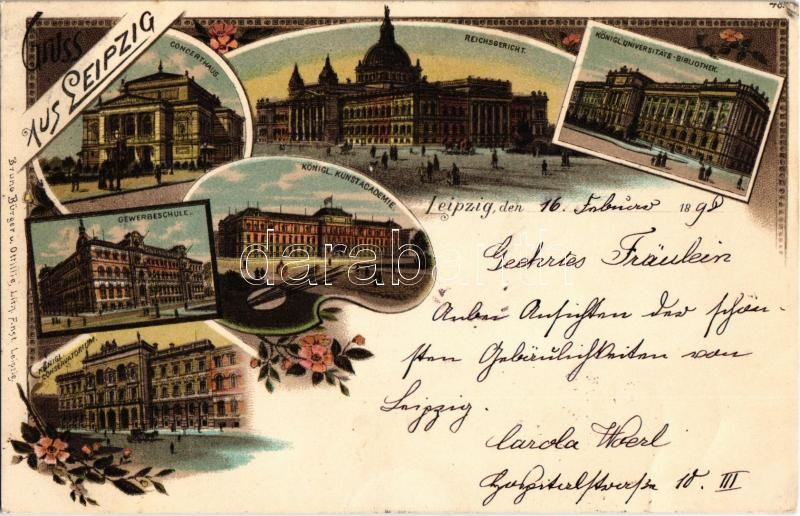 Gruss
aus Leipzig
CONCERTHAUS.
REICHSGERICHT.
KÖNIGL. UNIVERSITÄTS-BIBLIOTHEK.
KÖNIGL. KUNSTACADEMIE.
GEWERBESCHULE.
KÖNIGL. CONSERVATORIUM.
Bruno Bürger u. Ottillie, Lith. Anst. Leipzig.
Leipzig, den 16. Februar 1898
Geehrtes Fräulein
Anbei Ansichten der schön-
sten Gebäulichkeiten von
Leipzig.
Carola Woerl
Hospitalstrasse 10. III
darabanth